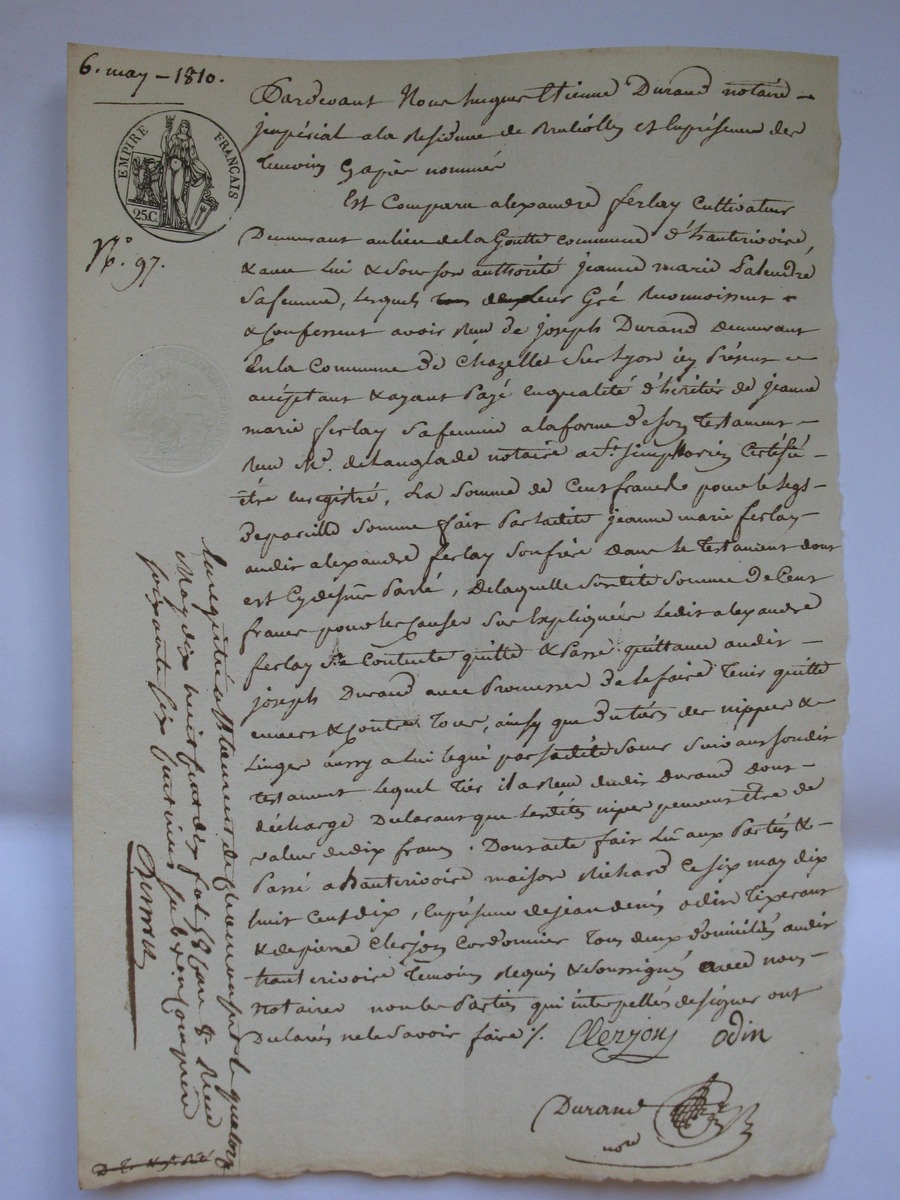 6. may - 1810.
EMPIRE FRANÇAIS
25.C.
N.° 97.
Pardevant Nous hugues Etienne Durand notaire
jmpérial a la Residence de Brullioles et en présence des
Temoins Cy apres nommés
Est Comparu alexandre ferlay Cultivateur
Demeurant au lieu de la Goutte commune d'hauterivoire,
& avec Lui & de sous son authorité jeanne marie
Sa femme, Lesquels de leur Gré Reconnoissent
& Confessent avoir Reçu de joseph Durand demeurant
En la Commune de Chazelles Sur Lyon icy Présent
accéptant & ayant Payé en qualité d'héritier de jeanne
marie ferlay Sa femme a la forme de Son Testament
Reçu M.e delanglade notaire a St. Simphorien Certifié
être enregistré, La Somme de Cent francs pour le Legs
De pareille Somme fait Par ladite jeanne marie ferlay
audit alexandre ferlay Son frère dans le Testament dont
est Cy dessus Parlé, De laquelle Susdite Somme De Cent
francs pour les Causes Sus Expliquées Ledit alexandre
ferlay Se Contente quitte & Passe quittance audit
joseph Durand avec Promesse de le faire Tenir quitte
envers & Contre Tous, ainsy que Du tiers des nippes &
Linges aussy a Lui legué par sadite Sœur Suivant Son dit
testament Lequel Tiers il a Reçu dudit Durand dont
décharge Déclarant que Lesdites nipes peuvent être de
valeur de dix francs. Dont acte fait Lû aux Parties &
Passé a hauterivoire maison Richard Ce six may dix
huit Cent dix, En présence de jean denis odin Tixerant
& de pierre Clerjon Cordonnier Tous deux domiciliés audit
hauterivoire Temoins Requis & Soussignés avec nous
notaire non les Parties qui interpellés de signer ont
Déclarés ne le Savoir faire /.
Clerjon odin
Durand
nore
Enregistré a St. Laurent de Chamousset le quatorze
May dix huit cent dix fol. 58 Reçu